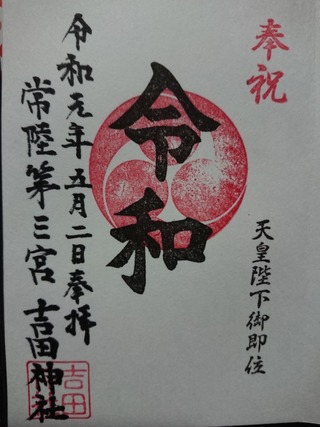 奉祝
天皇陛下御即位
令和
令和元年五月二日奉拝
常陸第三宮 吉田神社
吉田